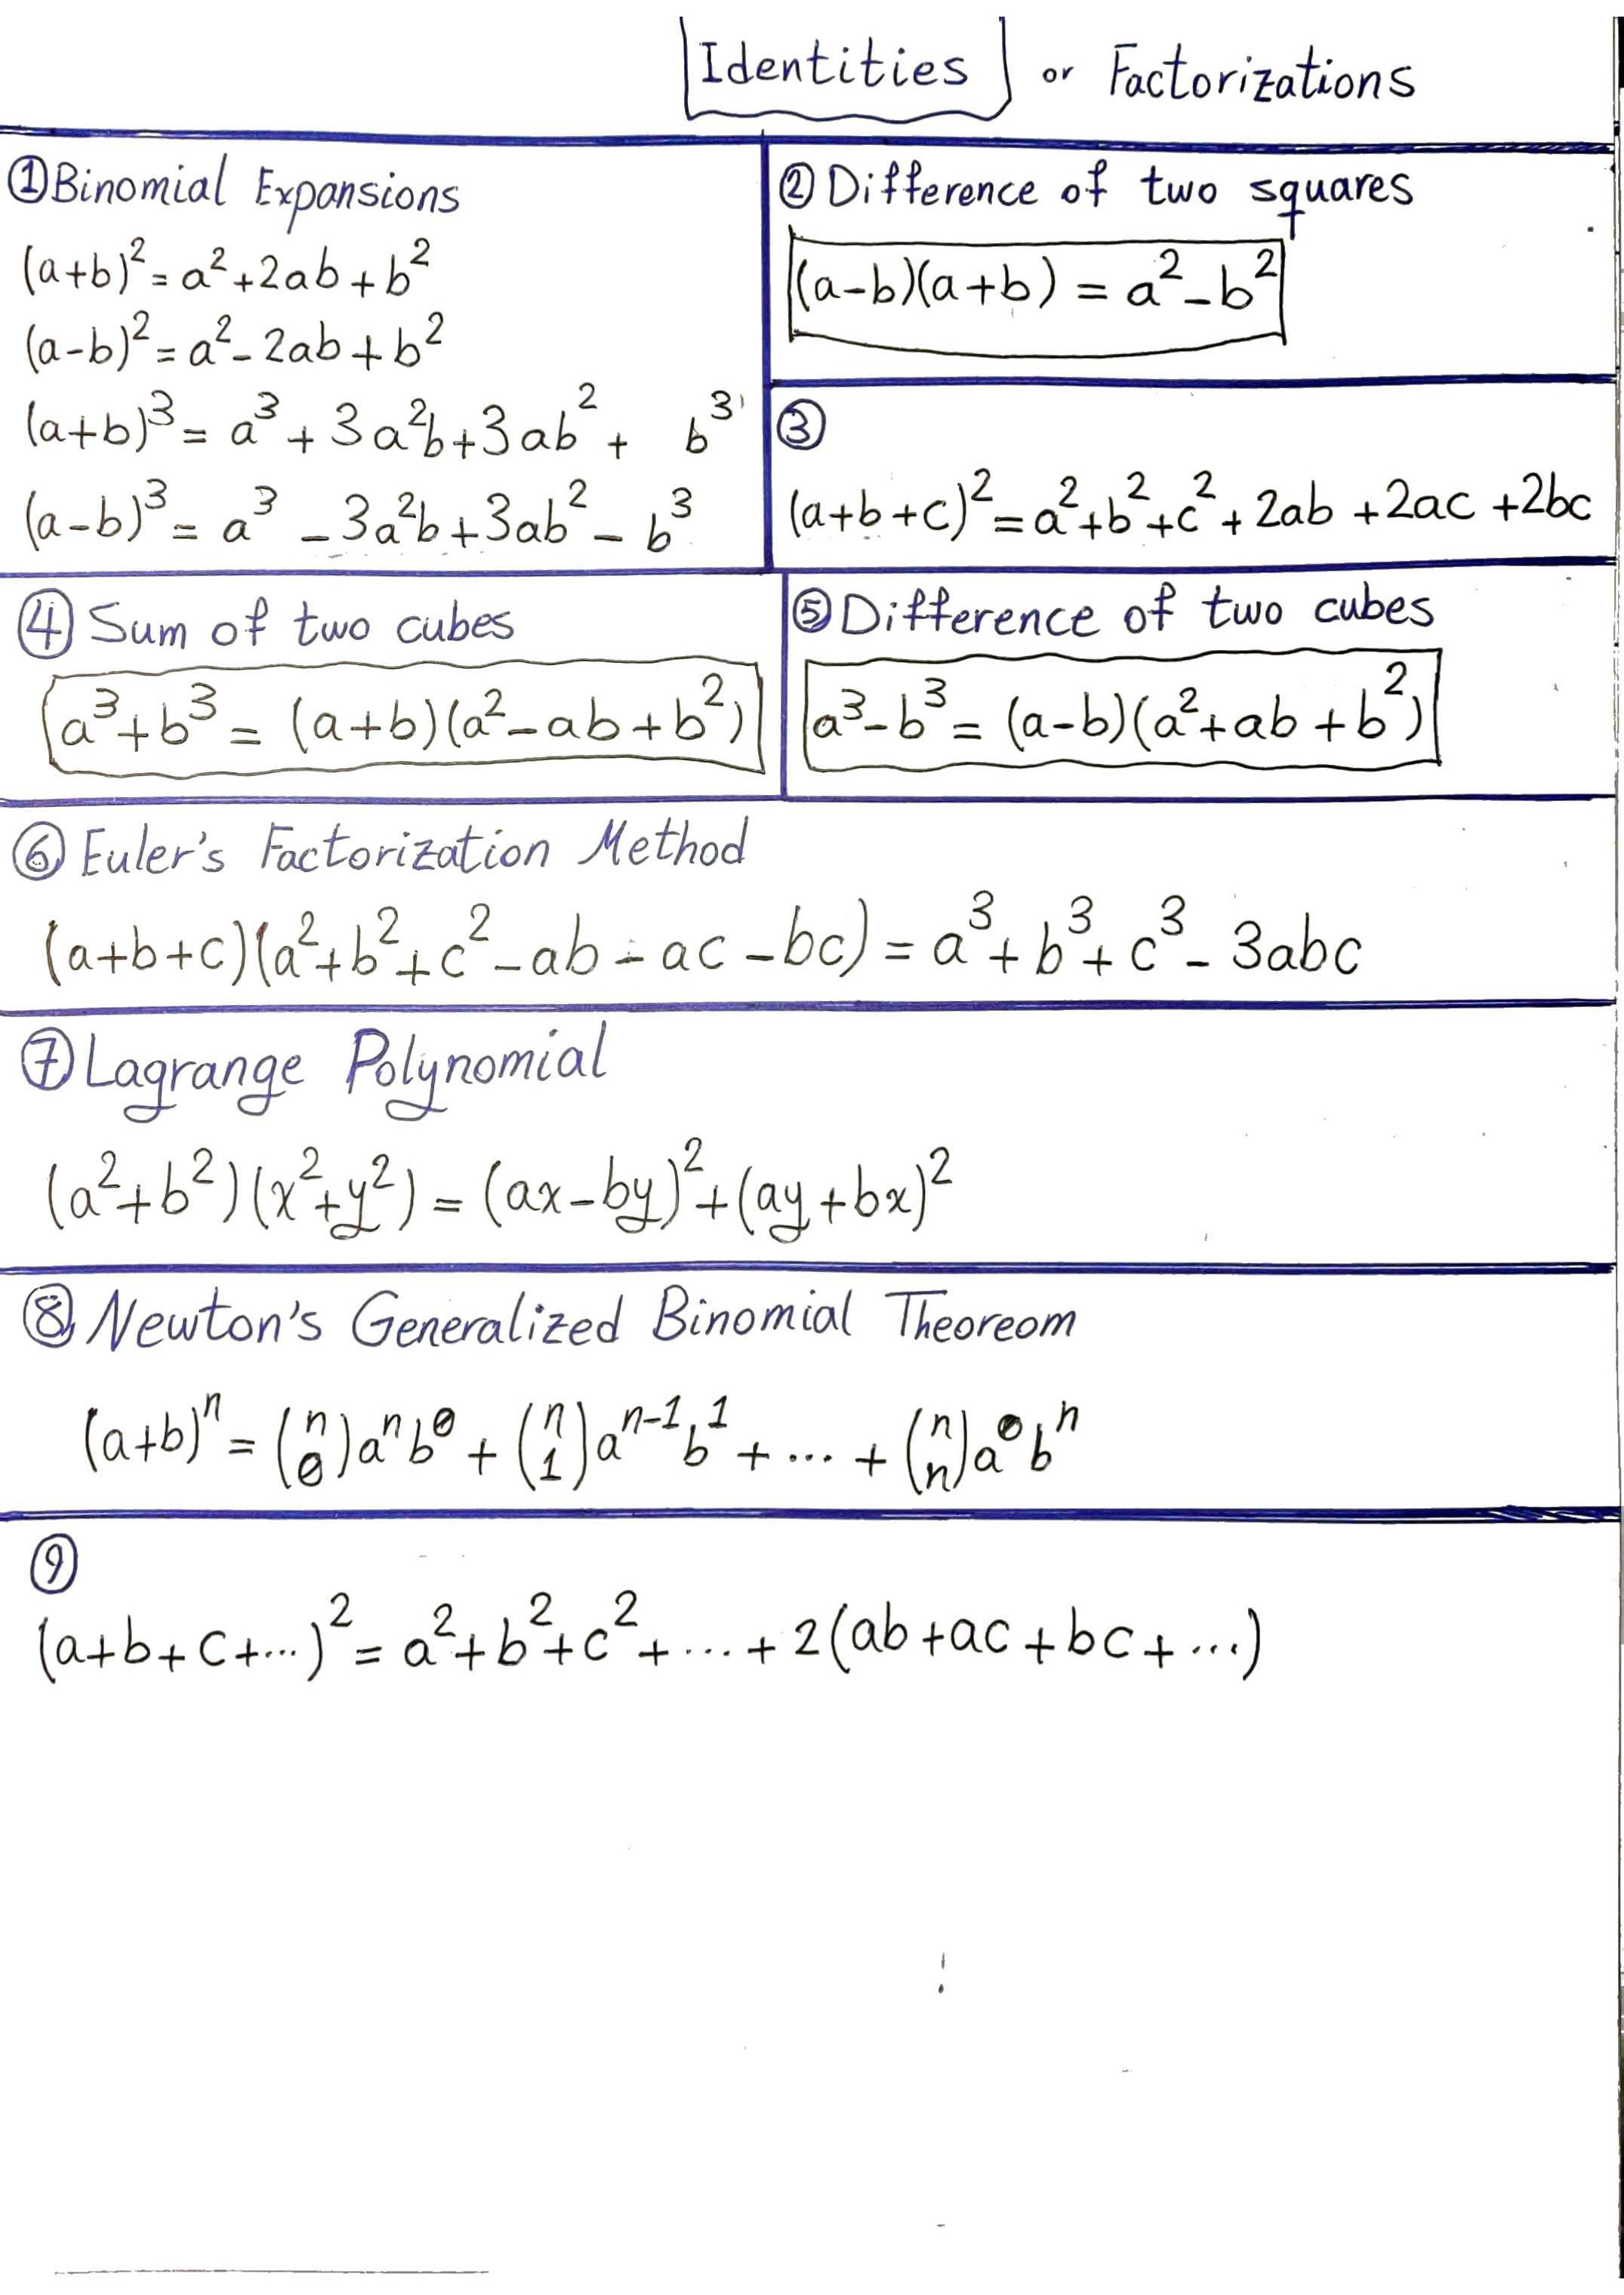 Identities or Factorizations
①Binomial Expansions
(a+b)²=a²+2ab+b²
(a-b)²=a²-2ab+b²
(a+b)³=a³+3a²b+3ab²+ b³
(a-b)³=a³-3a²b+3ab²-b³
②Difference of two squares
(a-b)(a+b)=a²-b²
③
(a+b+c)²=a²+b²+c²+2ab+2ac+2bc
④Sum of two cubes
a³+b³=(a+b)(a²-ab+b²)
⑤Difference of two cubes
a³-b³=(a-b)(a²+ab+b²)
⑥Euler's Factorization Method
(a+b+c)(a²+b²+c²-ab-ac-bc)=a³+b³+c³-3abc
⑦Lagrange Polynomial
(a²+b²)(x²+y²)=(ax-by)²+(ay+bx)²
⑧Newton's Generalized Binomial Theoreom
(a+b)ⁿ=(n 0)aⁿb⁰+(n 1)aⁿ⁻¹b¹+...+(n n)a⁰bⁿ
⑨
(a+b+c+...)²=a²+b²+c²+...+2(ab+ac+bc+...)